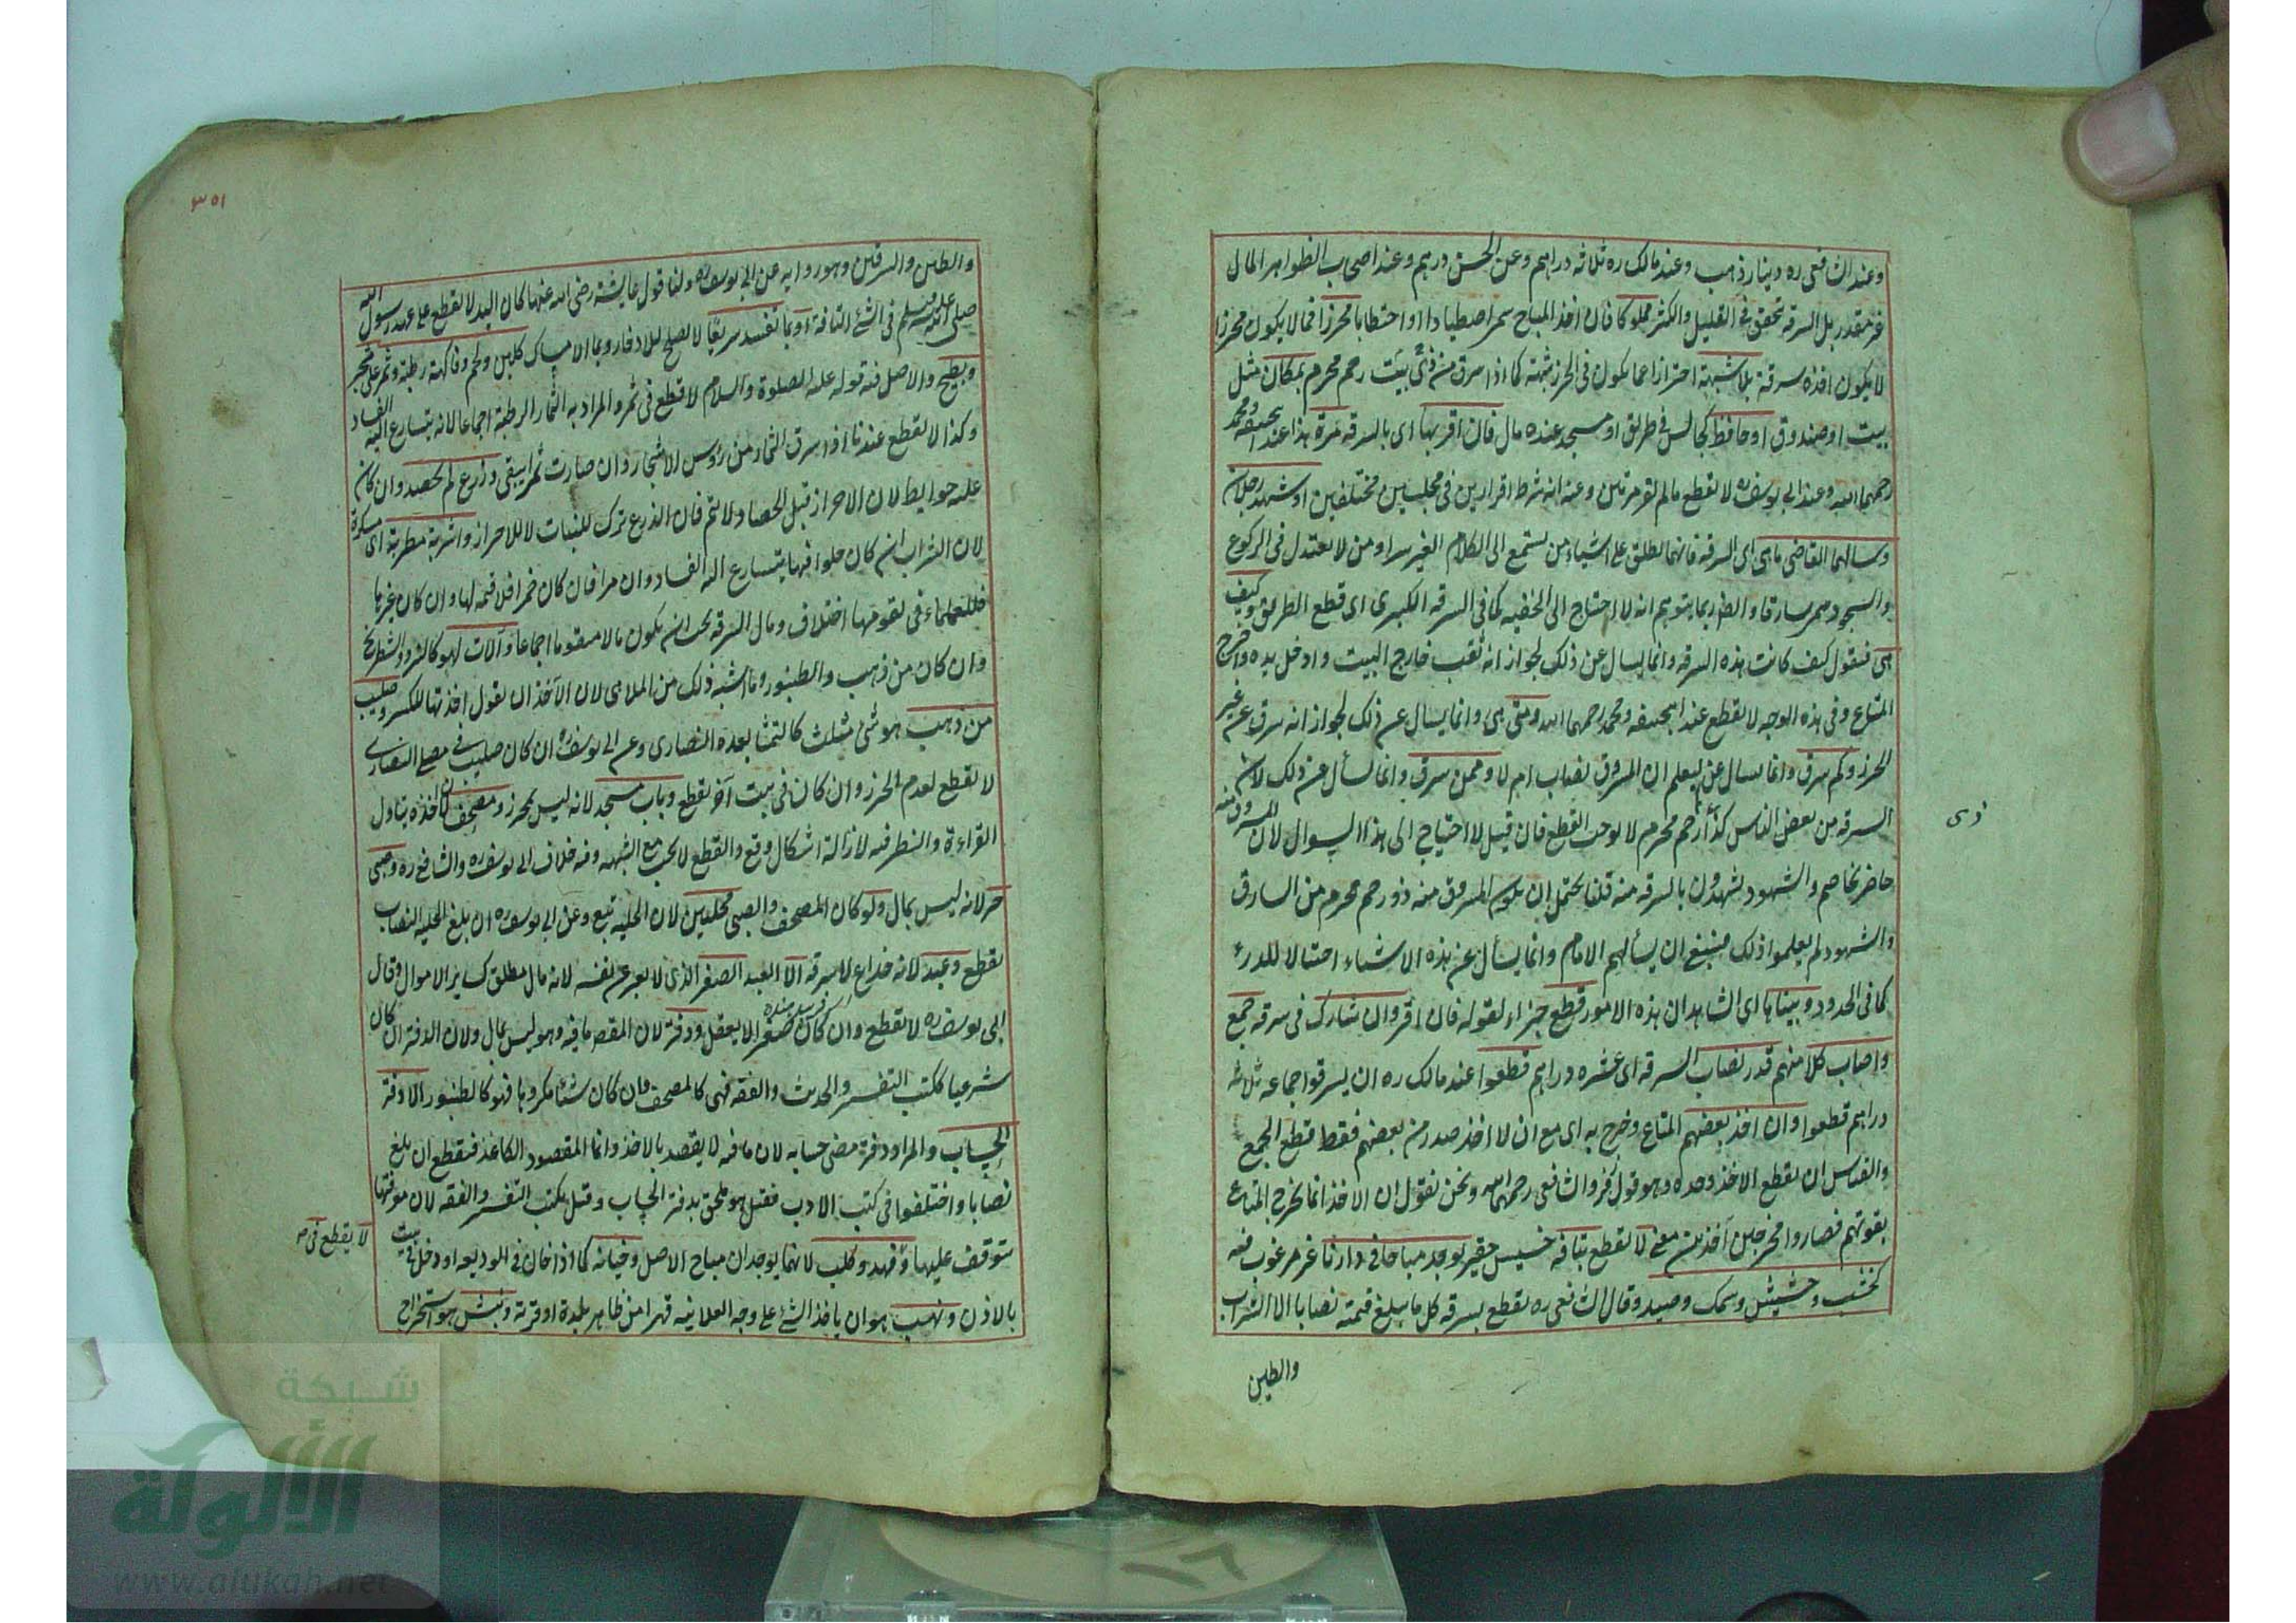 وعند الشافعى ره دينار ذهب وعند مالك ره ثلاثة دراهم وعن الحسن درهم وعند اصحاب الظواهر المال
غير مقدر بل السرقة تتحقق فى القليل والكثير مملوكا فان اخذ المباح سمى اصطيادا او احتطابا محرزا فما لا يكون محرزا
لا يكون اخذه سرقة بلا شبهة احترازا عما يكون فى الحرز شبهة كما اذا سرق من ذى بيت رحم محرم بمكان مثل
بيت او صندوق او حافظ كجالس فى طريق او مسجد عنده مال فان اقر بها اى بالسرقة مرة هذا عند ابيحنيفه ومحمد
رحمهما الله وعند ابى يوسف ره لا تقطع مالم تقر مرتين وعنه انه شرط اقرارين فى مجلسين مختلفين او شهد رجلان
وسالهما القاضى ما هى اى السرقة فانها تطلق على اشياء من يستمع الى الكلام الغير سرا ومن لا يعتدل فى الركوع
والسجود سمى سارقا وايضا ربما يتوهم انه لا احتياج الى الخفية كما فى السرقة الكبرى اى قطع الطريق وكيف
هى فنقول كيف كانت هذه السرقة وانما يسال عن ذلك لجواز انه نقب خارج البيت وادخل يده واخرج
المتاع وفى هذه الوجه لا يقطع عند ابيحنيفه ومحمد رحمهما الله ومتى هى وانما يسال عن ذلك لجواز انه سرق عن غير
الحرز وكم سرق وانما يسال عن ليعلم ان المسروق نصاب ام لا وممن سرق وانما يسأل عن ذلك لان
السرقة من بعض الناس كذا رحم محرم لا يوجب القطع فان قيل لا احتياج الى هذا السوال لان المسروق منه
ذى
حاضر يخاصم والشهود يشهدون بالسرقة منه قلنا يحتمل ان يكون المسروق منه ذو رحم محرم من السارق
والشهود لم يعلموا ذلك فينبغى ان يسألهم الامام وانما يسأل عن هذه الاشياء احتيالا للدرء
كما فى الحدود وبيناها اى الشاهدان هذه الامور قطع جزاء لقوله فان اقر وان تشارك فى سرقة جمع
واصاب كلا منهم قدر نصاب السرقة اى عشره دراهم قطعوا عند مالك ره ان يسرقوا جماعه ثلاثة
دراهم قطعوا وان اخذ بعضهم المتاع وخرج به اى مع ان الاخذ صدر من بعضهم فقط قطع الجمع
والقياس ان يقطع الاخذ وحده وهو قول زفر والشافعى رحمهما الله ونحن نقول ان الاخذ انما يخرج المتاع
بقوتهم فصاروا مخرجين آخذين معنى لا تقطع بتافه خسيس حقير يوجد مباحا فى دارنا غير مرغوب فيه
كخشب وحشيش وسمك وصيد وقال الشافعى ره يقطع بسرقة كل ما يبلغ قيمته نصابا الا الشراب
والطين
٣٥١
والطين والسرقين وهو رواية عن ابى يوسف ره ولنا قول عايشة رضى الله عنها كان اليد لا تقطع على عهد رسول الله
صلى الله عليه وسلم فى الشئ التافه او بما تفسد سريعا لا يصلح للادخار وبما الامساك كلبن ولحم وفاكهة رطبة وثمر على شجر
وبطيخ والاصل فيه قوله عليه الصلوة والسلام لا قطع فى ثمر والمراد به الثمار الرطبة اجماعا لانه يتسارع اليه الفساد
وكذا لا تقطع عندنا اذا سرق الثمار من رؤس الاشجار وان صارت ثمرا يبقى وزرع لم يحصد وان كان
عليه حوايط لان الاحراز قبل الحصاد لا تتم فان الزرع ترك للنبات لا للاحراز واشربة مطربة اى مسكرة
لان الشراب ان كان حلوا فيها يتسارع اليه الفساد وان مرا فان كان خمرا فلا قيمة لها وان كان غيرها
فللعلماء فى تقومها اختلاف ومال السرقة يجب ان يكون مالا متقوما اجماعا وآلات لهو كالنرد والشطرنج
وان كان من ذهب والطنبور وما اشبه ذلك من الملاهى لان الآخذ ان يقول اخذتها للكسر وصليب
من ذهب هو شئ مثلث كالتمثا يعبده النصارى وعن ابى يوسف ره ان كان صليب فى مصلى النصارى
لا تقطع لعدم الحرز وان كان فى بيت آخر تقطع وباب مسجد لانه ليس بمحرز ومصحف لان اخذه يتاول
القراءة والنظر فيه لازالة اشكال وقع والقطع لا يجب مع الشبهة وفيه خلاف ابى يوسف ره والشافعى ره وصبى
حر لانه ليس بمال ولو كان المصحف والصبى محليين لان الحلية تبع وعن ابى يوسف ره ان بلغ الحلية النصاب
يقطع وعبد لانه خداع لا سرقة الا العبد الصغير الذى لا يعبر عن نفسه لانه مال مطلق كساير الاموال وقال
ابى يوسف ره لا تقطع وان كان صغيرا لا يعقل ودفتر لان المقص ما فيه وهو ليس بمال ولان الدفتر ان كان
شرعيا ككتب التفسير والحديث والفقه فهى كالمصحف فان كان شيئا مكروها فهو كالطنبور الا دفتر
الحساب والمراد دفتر مضى حسابه لان ما فيه لا يقصد بالاخذ وانما المقصود الكاغذ فيقطع ان بلغ
نصابا واختلفوا فى كتب الادب فقيل هو ملحق بدفتر الحساب وقيل بكتب التفسير والفقه لان معرفتها
متوقف عليها وفهد وكلب لانهما يوجدان مباح الاصل وخيانة كما اذا خان فى الوديعه او دخل فى بيت
لا يقطع فى
بالاذن ونهب هو ان ياخذ الشئ على وجه العلانيه قهرا من ظاهر بلدة او قرية ونبش هو استخراج
شبكة
الألوكة
www.alukah.net